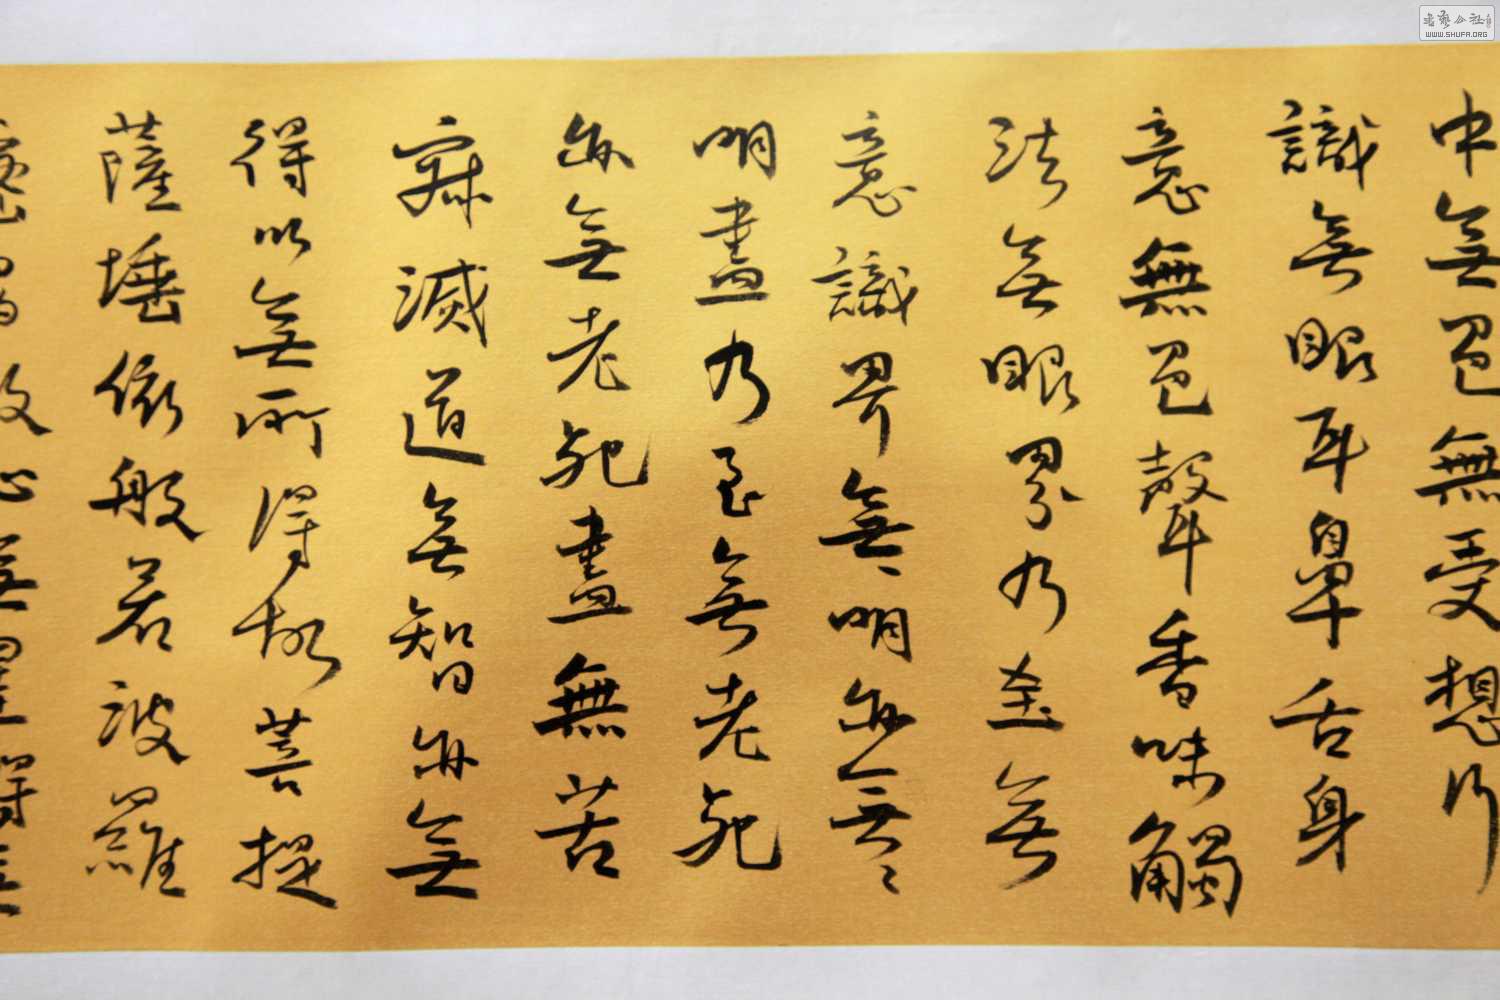 中無色無受想行
識無眼耳鼻舌身
意無色聲香味觸
法無眼界乃至無
意識界無〻明亦無〻
明盡乃至無老死
亦無老死盡無苦
寂滅道無智亦無
得以無所得故菩提
薩埵依般若波羅
故心無罣礙無
書藝公社
WWW.SHUFA.ORG